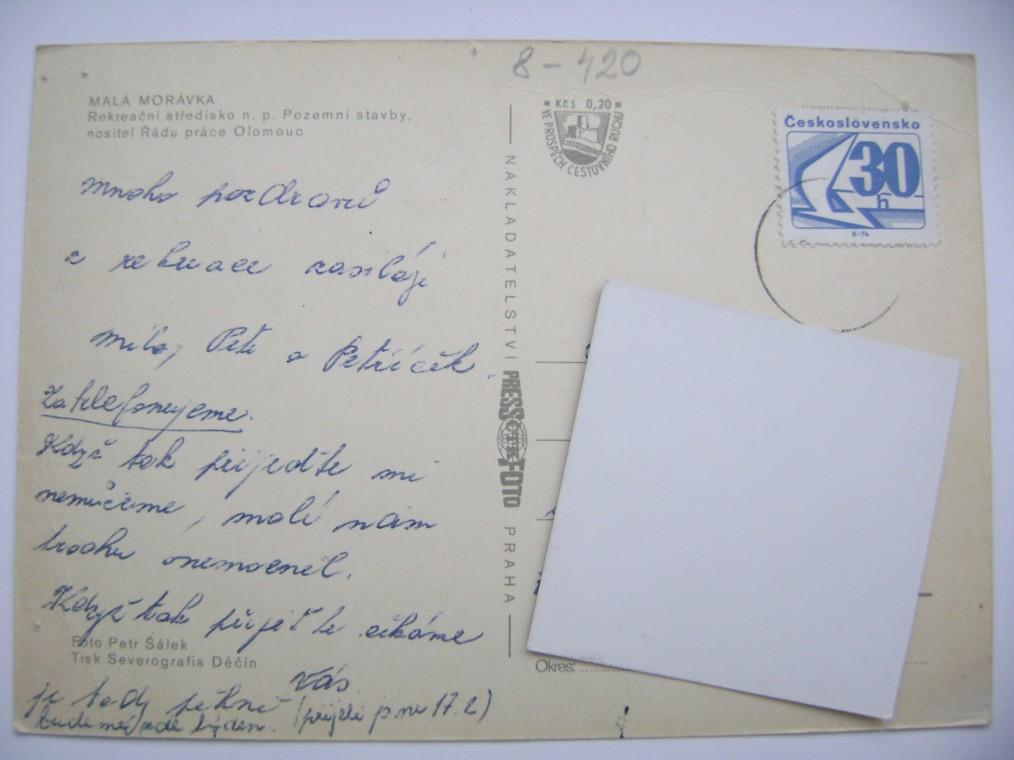 8-420
MALÁ MORÁVKA
Rekreační středisko n. p. Pozemní stavby,
nositel Řádu práce Olomouc
Kčs 0,20
VE PROSPĚCH CESTOVNÍHO RUCHU
Československo
30
h
mnoho pozdravů
z rekreace zasílají
Míla, Petr a Petříček
Zatelefonujeme.
Když tak přijeďte mi
nemůžeme, malí nám
trochu onemocněl.
Když tak přijeďte čekáme
Vás
je tady pěkně
budeme zde týden. (přijeli jsme 17.2)
Foto Petr Šálek
Tisk Severografia Děčín
NAKLADATELSTVÍ PRESSFOTO PRAHA
Okres: